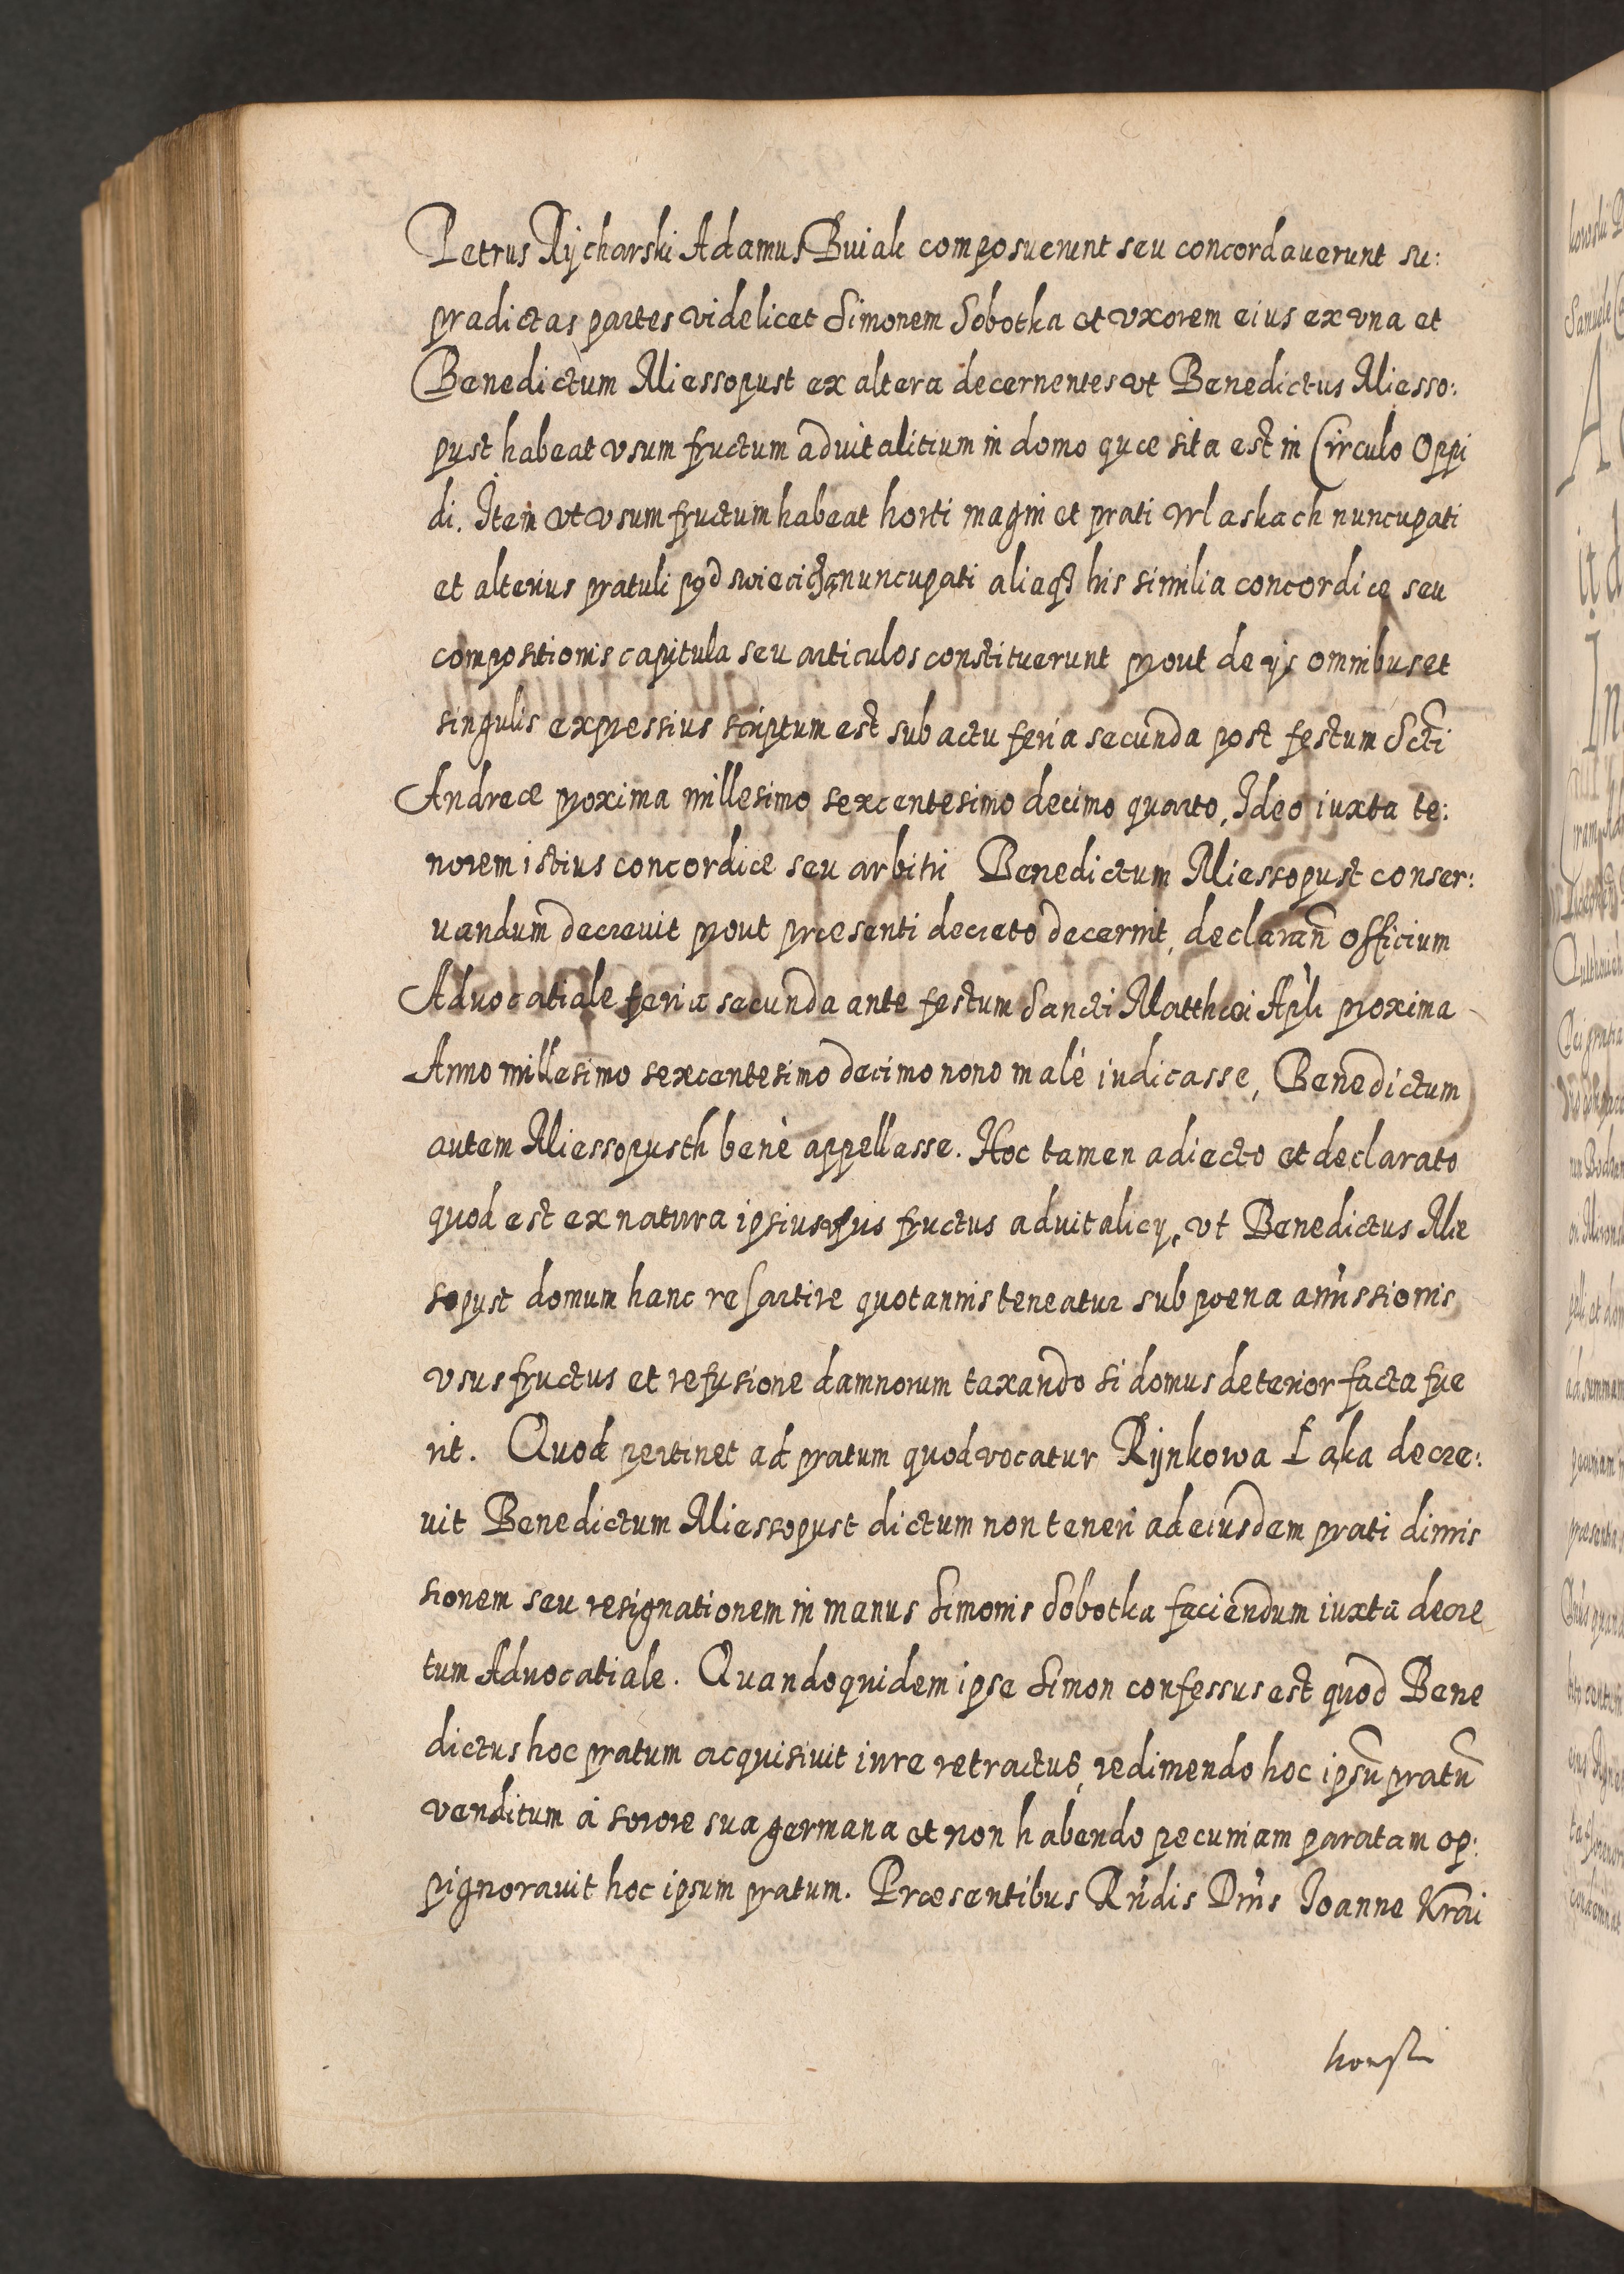 Petrus Rycharski Adamus Buiak composuerunt seu concordauerunt su:
pradictas partes videlicet Simonem Sobotka et vxorem eius ex vna et
Benedictum Miessopust ex altera decernentes vt Benedictus Miesso:
pust habeat vsum fructum aduitalitium in domo quæ sita est in Circulo Oppi
di. Item vt vsum fructum habeat horti magni et prati Wrlaskach nuncupati
et alterius pratuli pod nuncupati aliaq3 his similia concordiæ seu
compositionis capitula seu articulos constituerunt prout de ijs omnibus et
singulis expressius scriptum est sub actu feria secunda post festum Scti
Andreæ proxima millesimo sexcentesimo decimo quarto, Ideo iuxta te:
norem istius concordiæ seu arbitri Benedictum Miessopust conser:
uandum decreuit prout præsenti decreto decernit, declaran̄ officium
Aduocatiale feria secunda ante festum Sancti Matthæi Apli proxima
Anno millesimo sexcentesimo decimo nono malè iudicasse, Benedictum
autem Miessopusth benè appellasse. Hoc tamen adiecto et declarato
quod est ex natura ipsius vsus fructus aduitalicij, vt Benedictus Mie
sopust domum hanc resartire quotannis teneatur sub poena amissionis
vsus fructus et refusione damnorum taxando si domus deterior facta fue
rit. Quod pertinet ad pratum quod vocatur Rynkowa Łąka decre:
uit Benedictum Miessopust dictum non teneri ad eiusdem prati dimis
sionem seu resignationem in manus Simonis Sobotka faciendum iuxta decre
tum Aduocatiale. Quandoquidem ipse Simon confessus est quod Bene
dictus hoc pratum acquisiuit iure retractus, redimendo hoc ipsū pratū
venditum à sorore sua germana et non habendo pecuniam paratam op:
pignorauit hoc ipsum pratum. Præsentibus Rn̄dis Dnīs Ioanne Krai
kowski